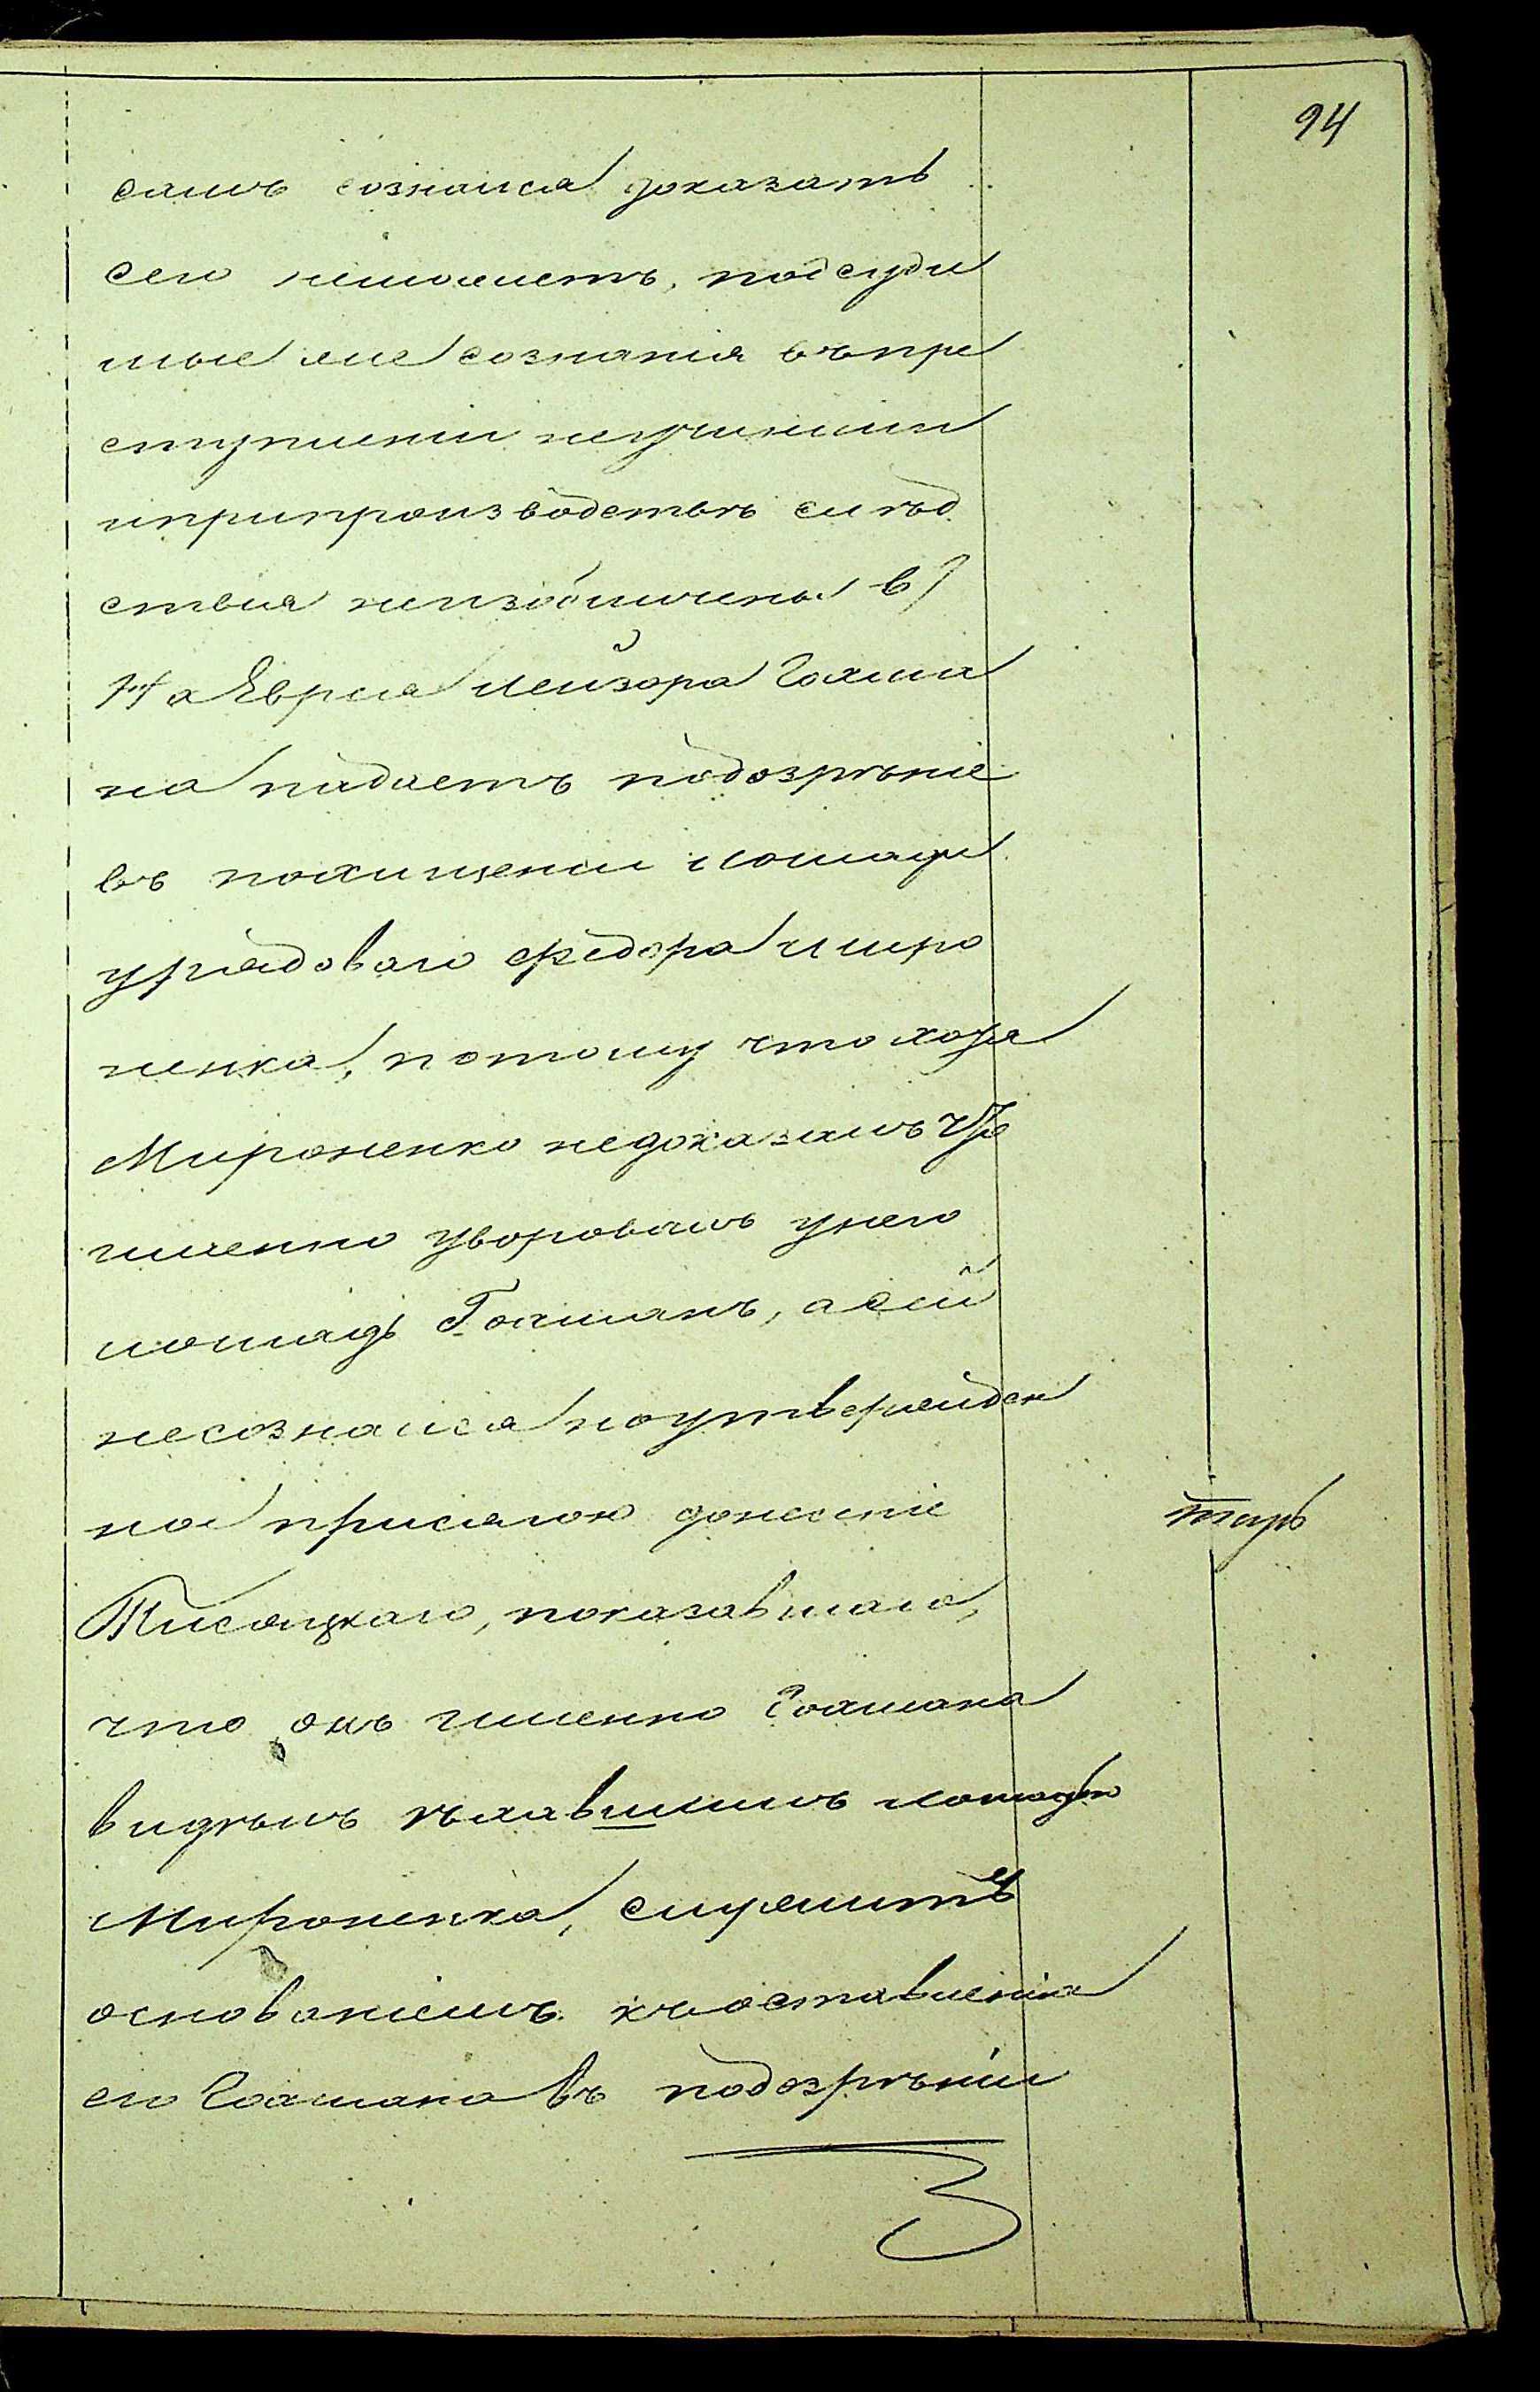 94
самъ сознался доказать
сего неможетъ, подсуди
мые же сознанія въпре
ступленіи неучинили
иприпроизводствѣ слѣд
ствія неизобличены в)
На Еврея Лейзора Гохма
на падаетъ подозрѣніе
въ похищеніи лошади
урядоваго Федора Миро
ненка, потому что хотя
Мироненко недоказалъ что
именно уворовалъ унего
лошадь Гохманъ, а сей
несознался ноутвержден
ное присягою донесеніе
Писоцкаго, показавшаго,
что онъ именно Гохмана
видѣлъ ѣхавшимъ лошадью
Мироненка, служитъ
основаніемъ къоставленія
его Гохмана въ подозрѣніи